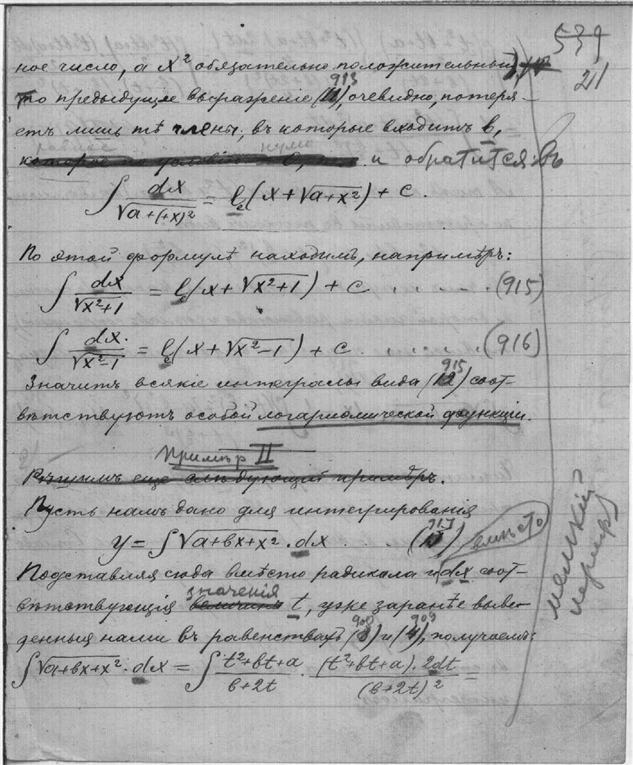 539
21
ное число, а x² обязательно положительный,
то предыдущее выраженіе (913), очевидно, потеря-
етъ лишь тѣ члены, въ которые входитъ b,
и обратится въ
∫ dx / √a+(+x)² = lg(x + √a+x²) + c.
По этой формулѣ находимъ, напримѣръ:
∫ dx / √x²+1 = lg(x + √x²+1) + c . . . . (915)
∫ dx. / √x²-1 = lg(x + √x²-1) + c . . (916)
Значитъ всякіе интегралы вида (915) соот-
вѣтствуютъ особой логариѳмической функціи.
Примѣръ II
Рѣшимъ еще слѣдующій примѣръ.
Пусть намъ дано для интегрированія
y = ∫ √a+bx+x² . dx (917)
вмѣсто
Подставляя сюда вмѣсто радикала и dx соот-
вѣтствующія значенія t, уже заранѣе выве-
денныя нами въ равенствахъ (908) и (909), получаемъ:
∫ √a+bx+x² . dx = ∫ t²+bt+a / b+2t . (t²+bt+a) . 2dt / (b+2t)² =
мелкій